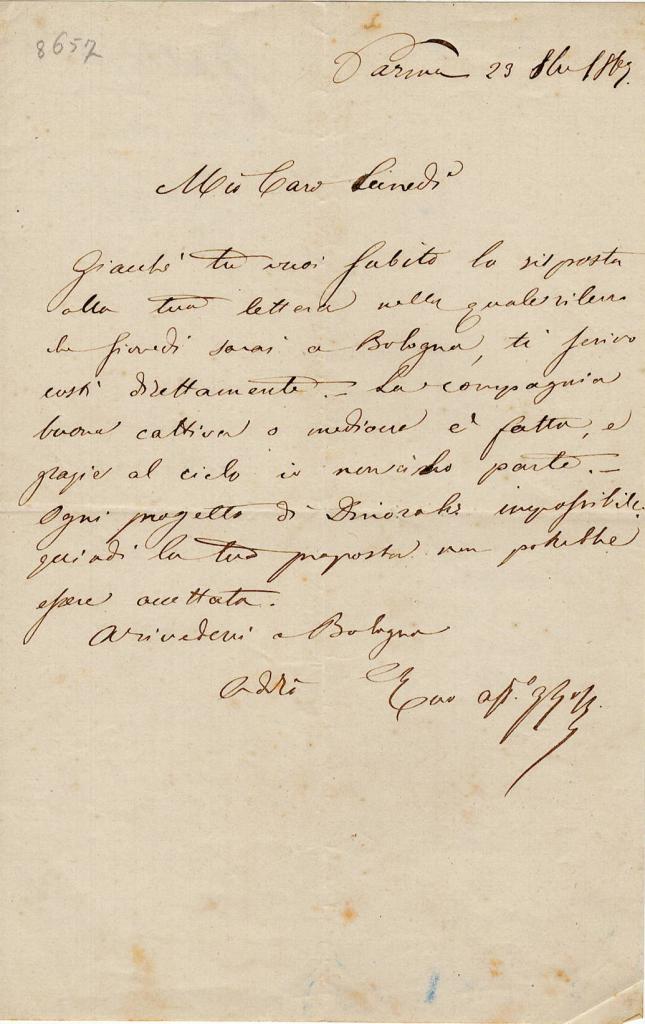 8657
Parma 23 8bre 1869
Mio Caro
Giacchè tu vuoi subito la risposta
alla tua lettera nella quale rilevo
che Giovedì sarai a Bologna, ti scrivo
costì direttamente. – La compagnia
buona cattiva o mediocre è fatta, e
grazie al cielo io non ci ho parte. –
Ogni progetto di impossibile
quindi la tua proposta non potrebbe
essere accettata.
Arivederci a Bologna
Addio Tuo aff.o